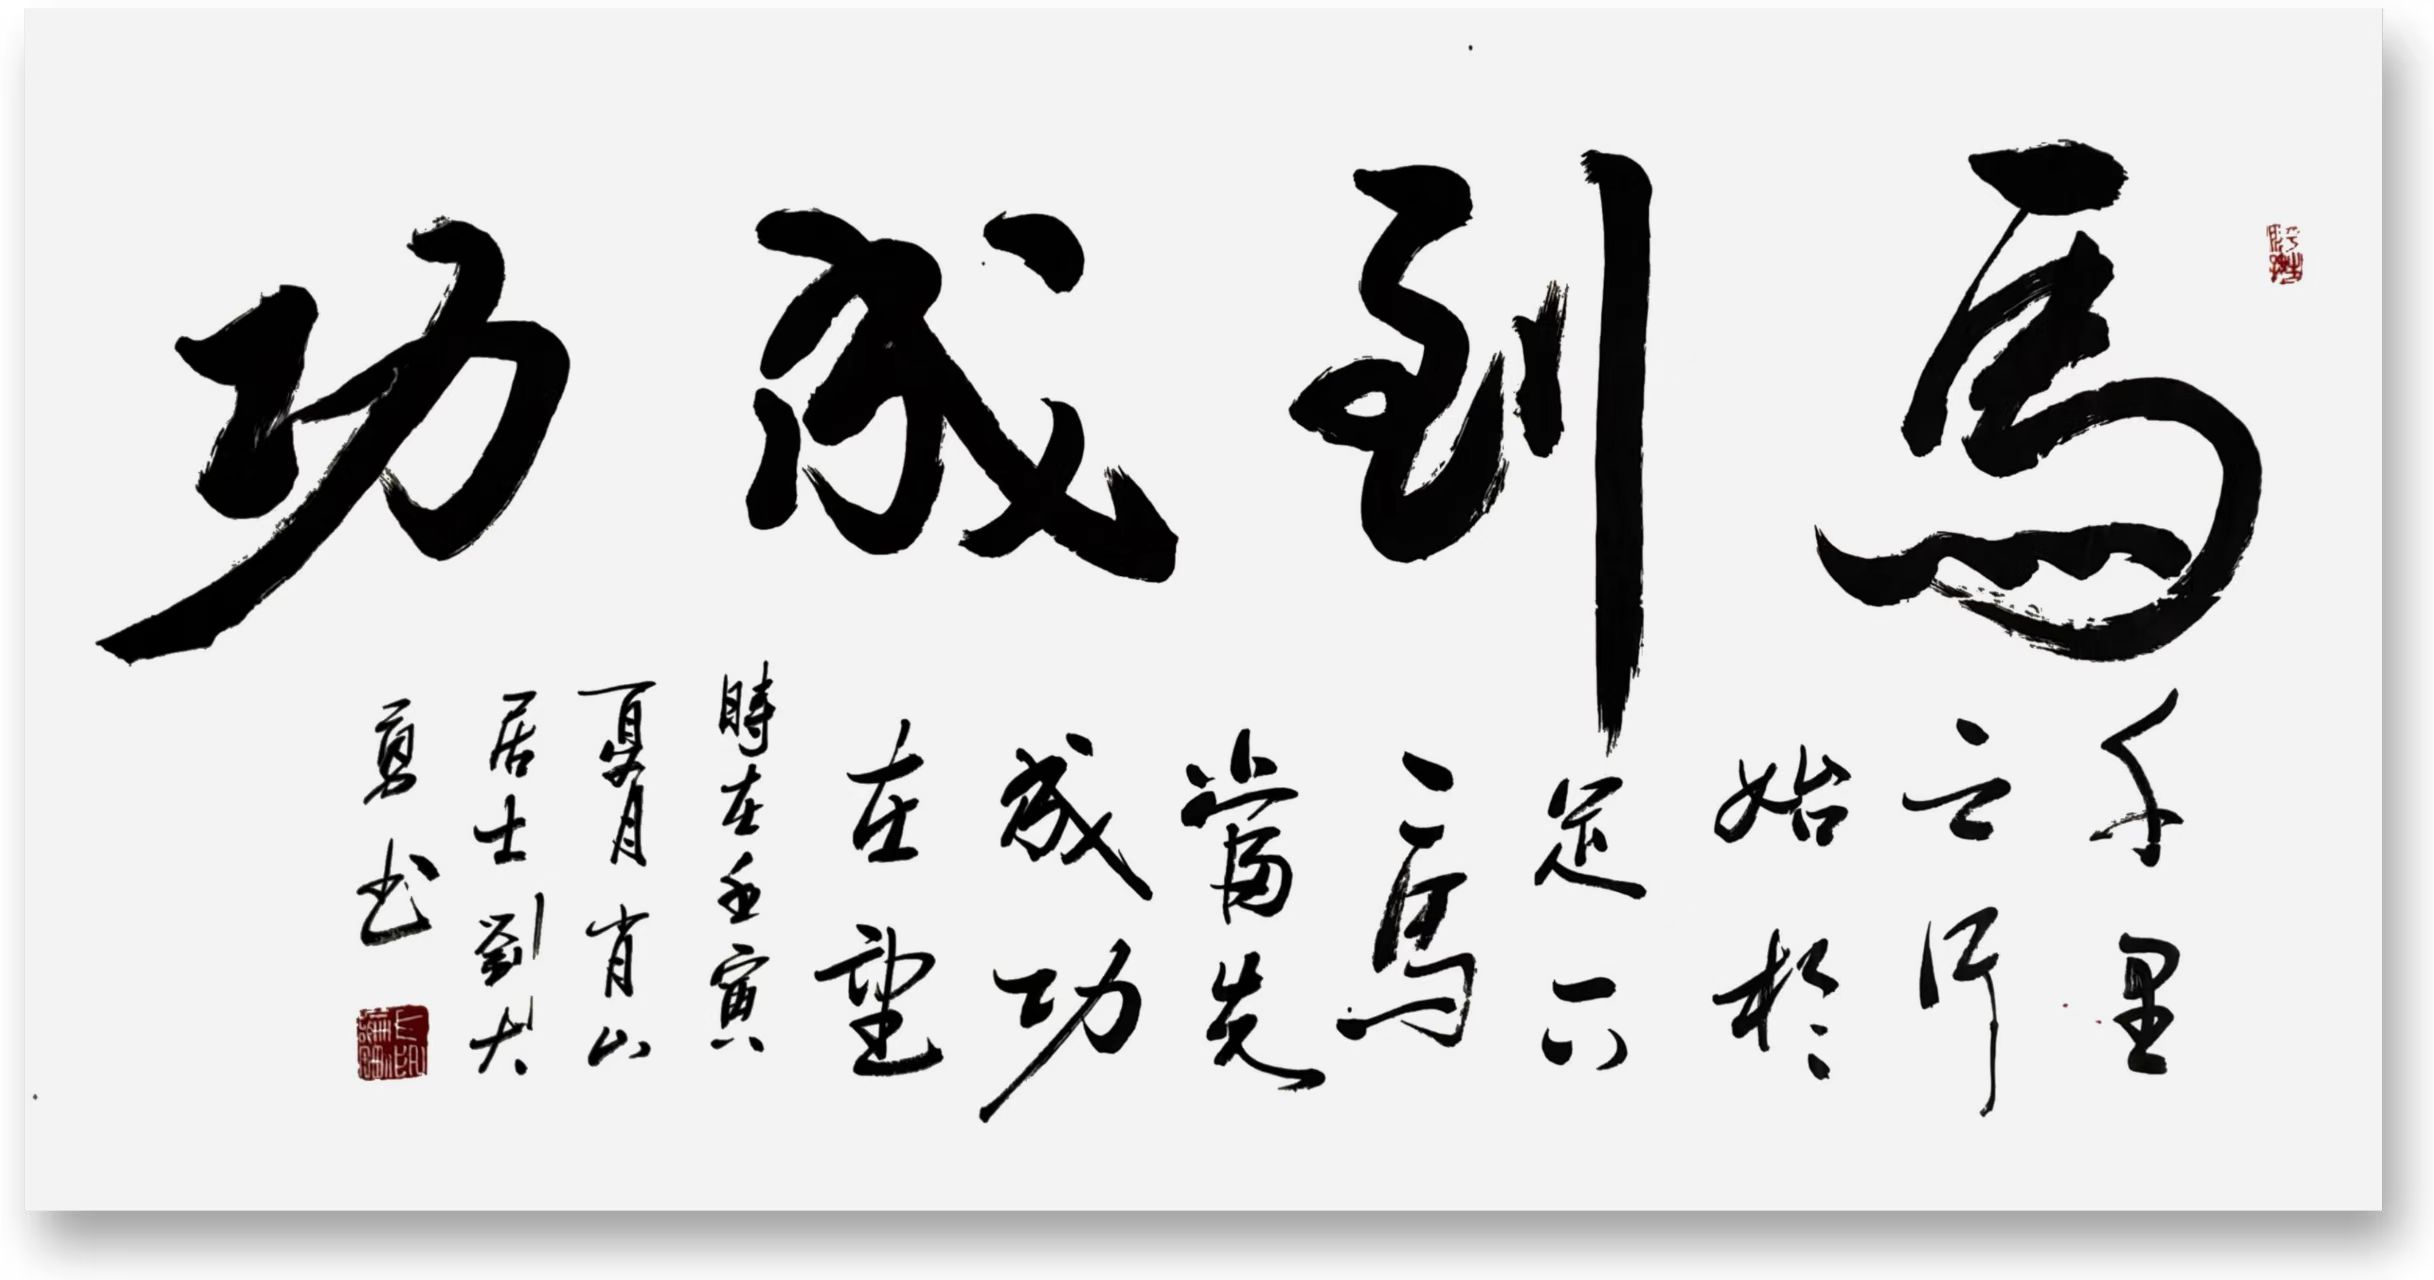 馬到成功
千里
之行
始於
足下
一馬
當先
成功
在望
時在壬寅
夏月肖山
居士劉大
勇书